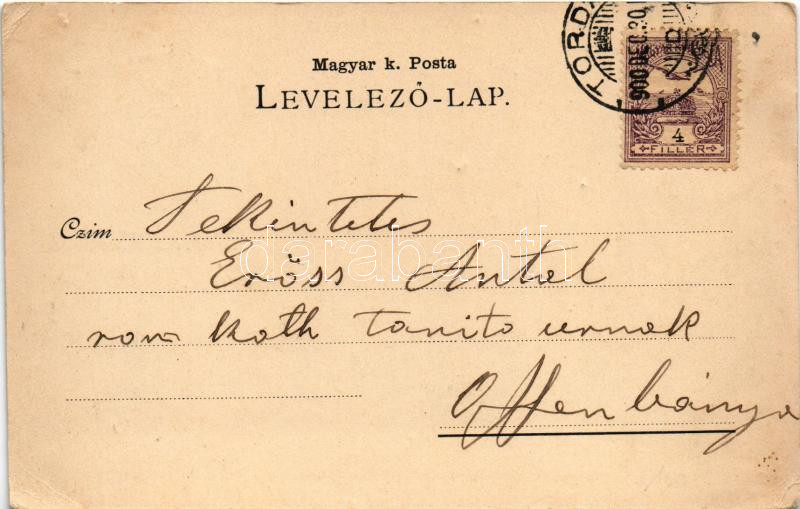 Magyar k. Posta
LEVELEZŐ-LAP.
TORDA
900 DEC 30
4
FILLÉR
Czim Tekintetes
Erőss Antal
rom kath tanito urnak
Offenbánya
darabanth